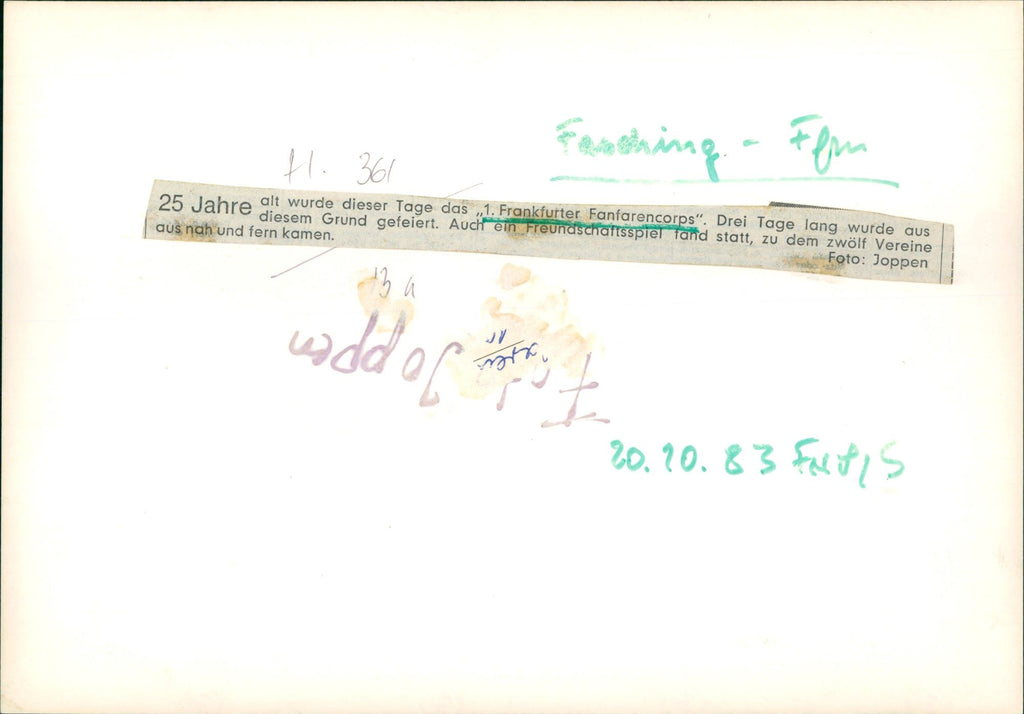 Fasching - Ffm
H. 361
25 Jahre alt wurde dieser Tage das „1. Frankfurter Fanfarencorps“. Drei Tage lang wurde aus
diesem Grund gefeiert. Auch ein Freundschaftsspiel fand statt, zu dem zwölf Vereine
aus nah und fern kamen.
Foto: Joppen
13 a
Foto Joppen
20.10.83